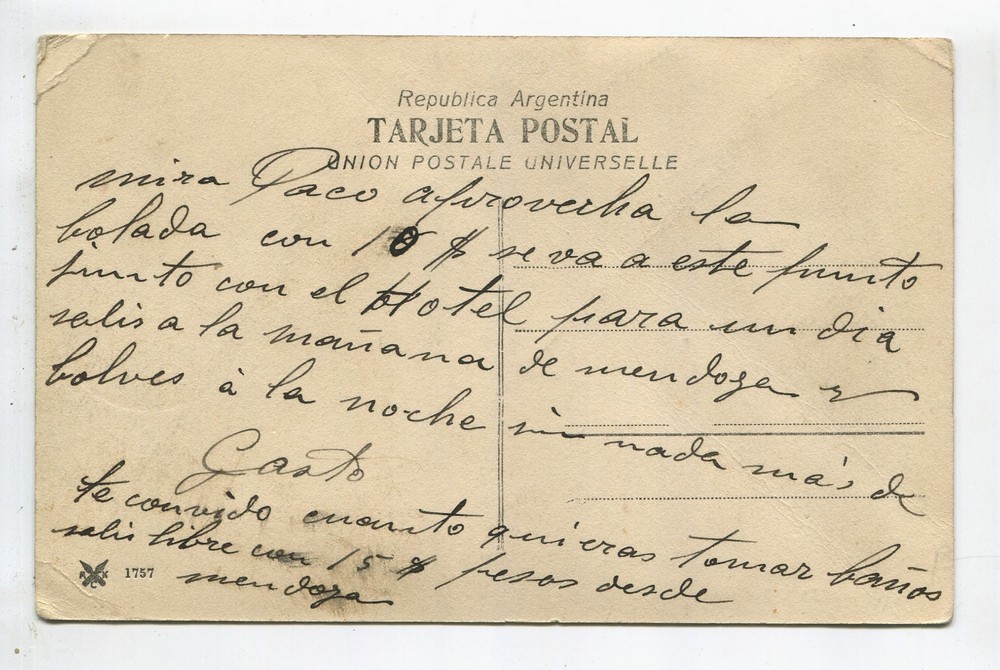 Republica Argentina
TARJETA POSTAL
UNION POSTALE UNIVERSELLE
mira Paco aprovecha la
bolada con 10 $ se va a este punto
junto con el Hotel para un dia
salis a la mañana de mendoza y
bolves à la noche sin nada más de
Gasto
te convido cuanto quieras tomar baños
salis libre con 15 $ pesos desde
mendoza
RK
C
1757